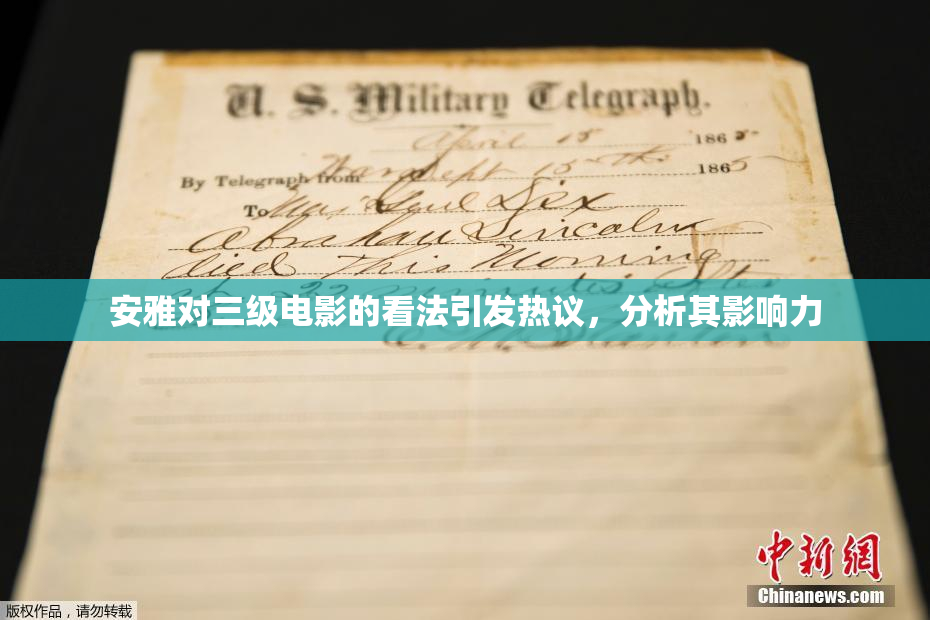 U. S. Military Telegraph.
April 15 1865
By Telegraph from War Dept 15th 1865
To Maj Genl Dix
Abraham Lincoln
died This Morning
at 22 minutes after
安雅对三级电影的看法引发热议，分析其影响力
E. M. Stanton
中新網
Chinanews.com
版权作品，请勿转载